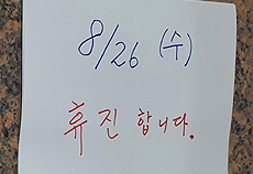 8/26 (수)
휴진 합니다.